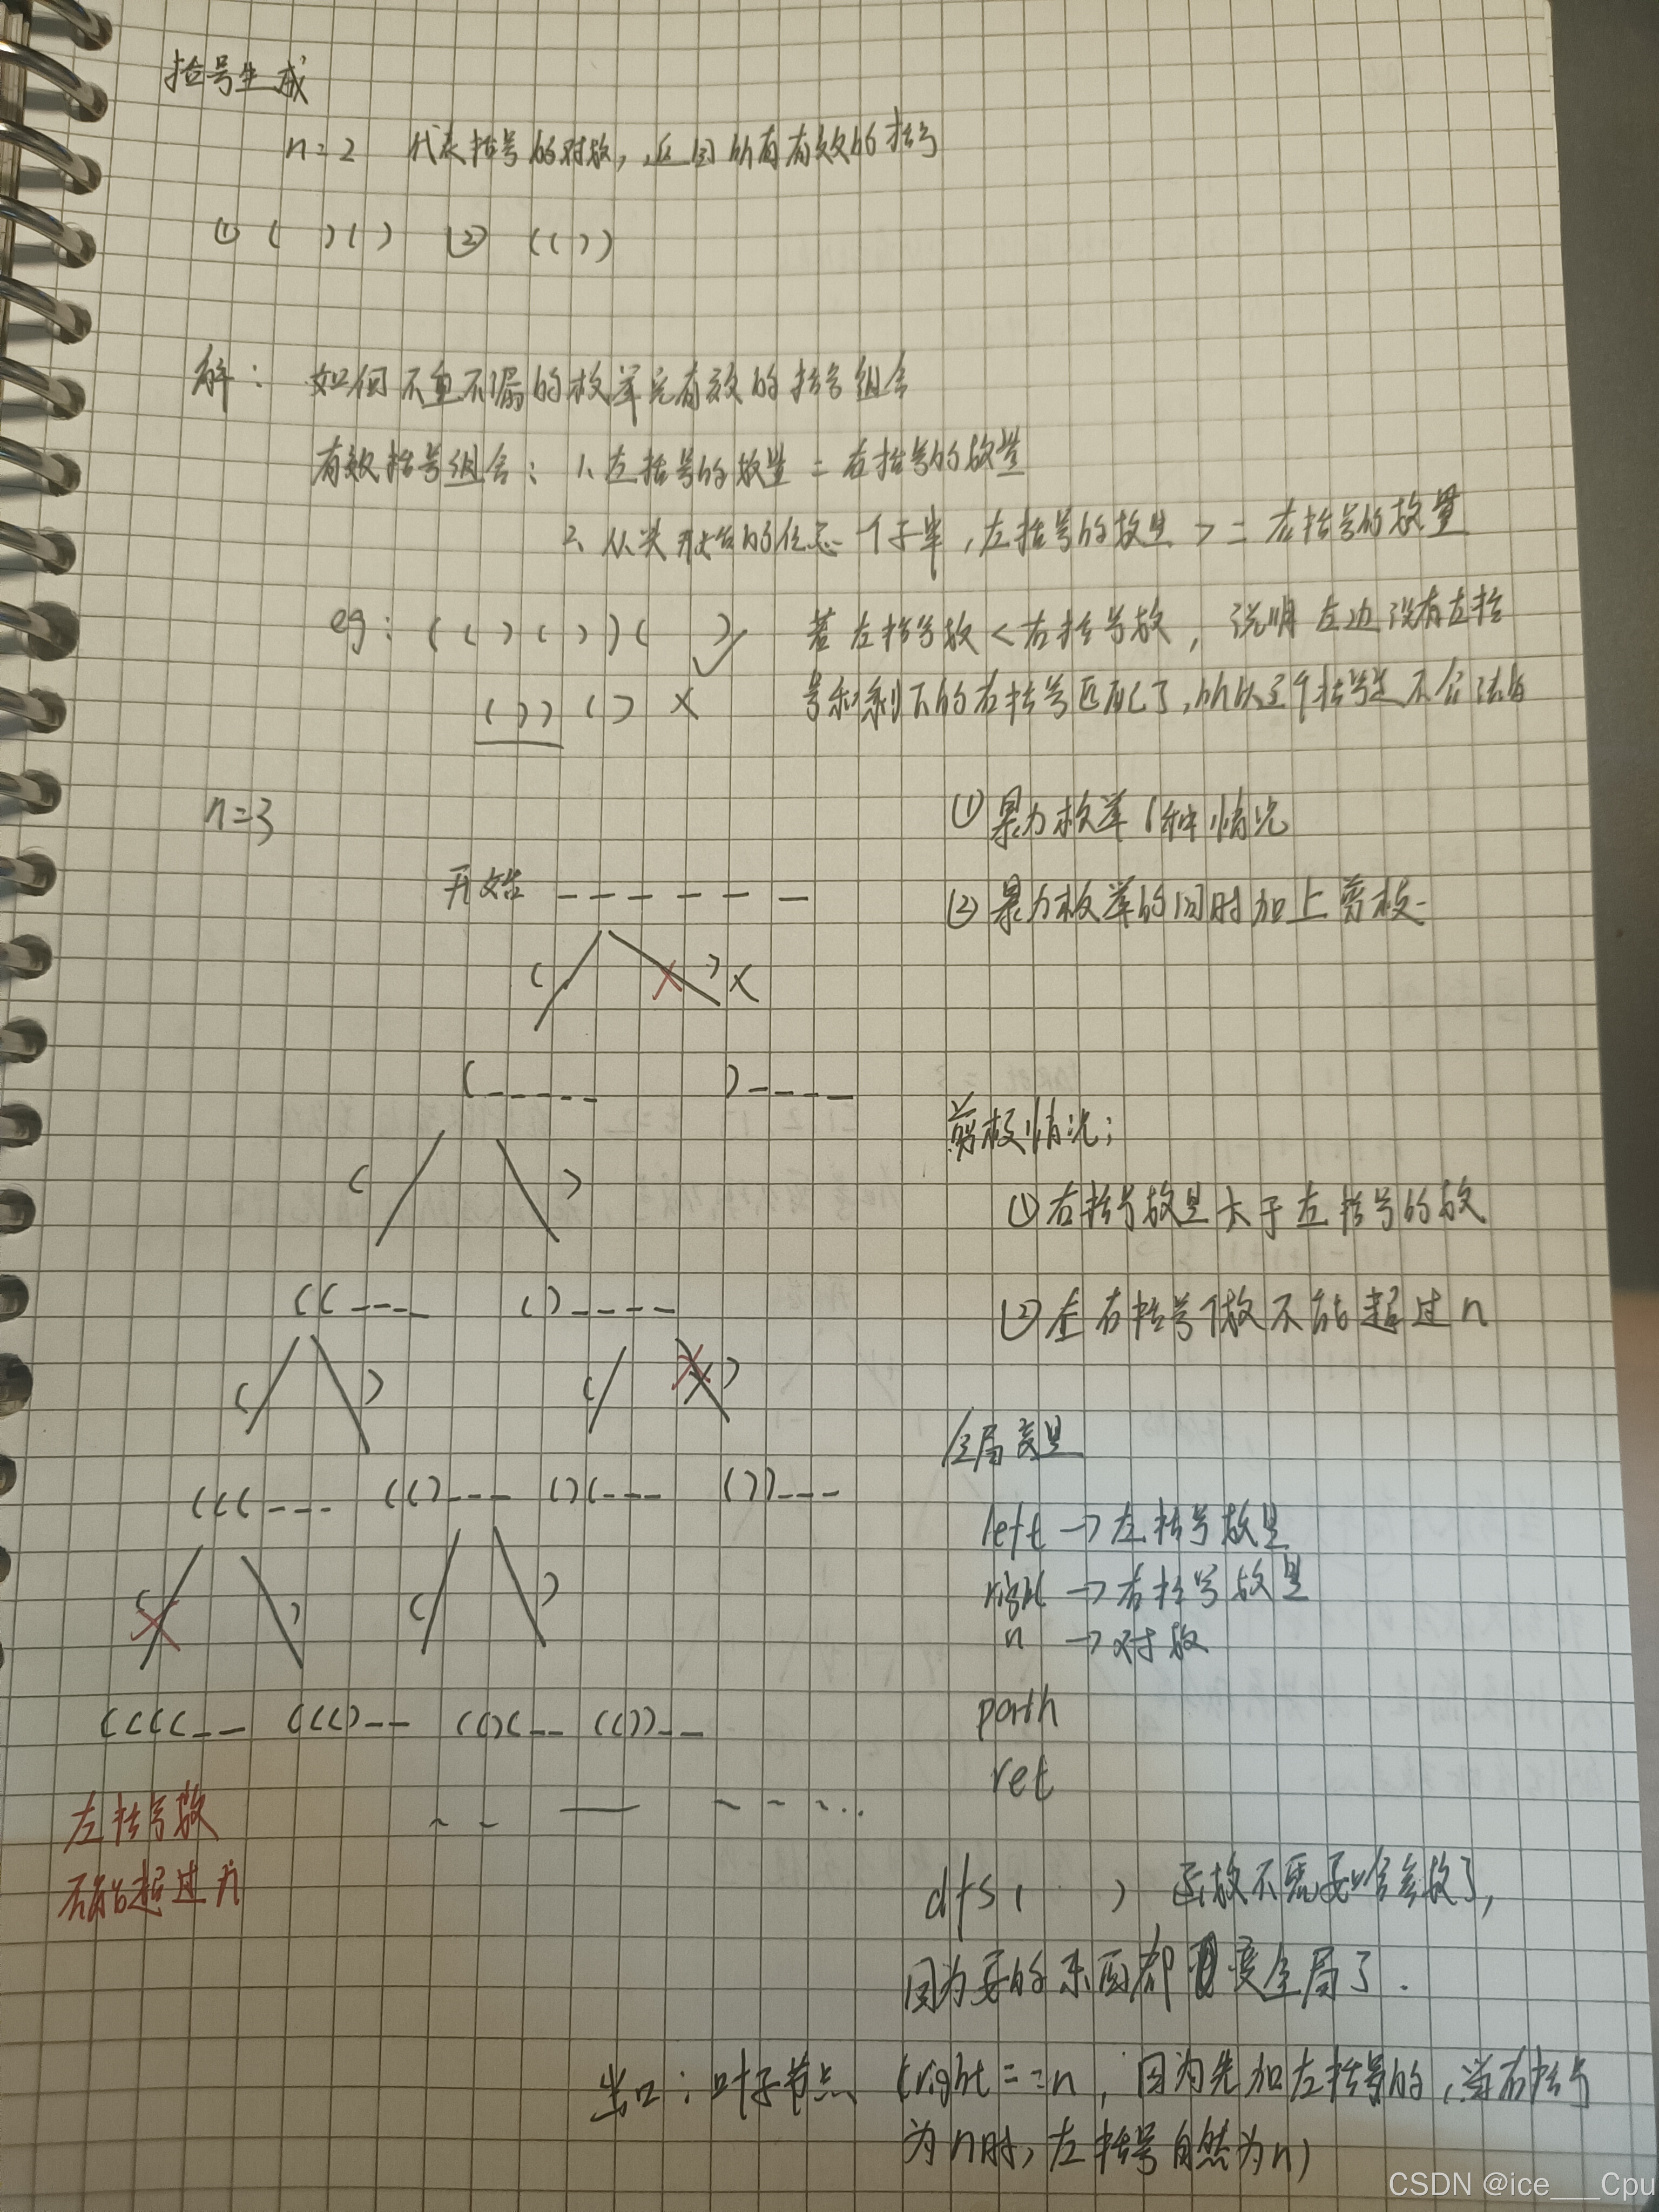 括号生成
n=2 代表括号的对数，返回所有有效的括号
① ( ) ( ) ② ( ( ) )
解： 如何不重不漏的枚举完有效的括号组合
有效括号组合： 1、左括号的数量 = 右括号的数量
2、从头开始的任意一个子串，左括号的数量 >= 右括号的数量
eg: ( ( ) ( ) ) ( ) ✓ 若左括号数 < 右括号数，说明左边没有左括
( ) ) ( ) × 号和剩下的右括号匹配了，所以这个括号是不合法的
n=3
①暴力枚举 种情况
开始 _ _ _ _ _ _
②暴力枚举的同时加上剪枝
( × ) ×
( _ _ _ _ _ ) _ _ _ _
剪枝情况：
( )
①右括号数量大于左括号的数
( ( _ _ _ _ ( ) _ _ _ _
②左右括号个数不能超过n
( ) ( × )
全局变量
( ( ( _ _ _ ( ( ) _ _ _ ( ) ( _ _ _ ( ) ) _ _ _
left → 左括号数量
right → 右括号数量
( × ) ( )
n → 对数
( ( ( ( _ _ ( ( ( ) _ _ ( ( ) ( _ _ ( ( ) ) _ _
path
ret
左括号数
不能超过n
dfs( ) 函数不需要啥参数了，
因为要的东西都 变全局了.
出口：叶子节点 (right==n，因为先加左括号的，当右括号
为n时，左括号自然为n)
CSDN @ice___Cpu